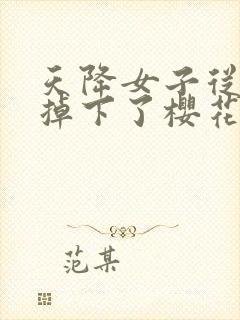 天降女子从
掉下了樱花
范某